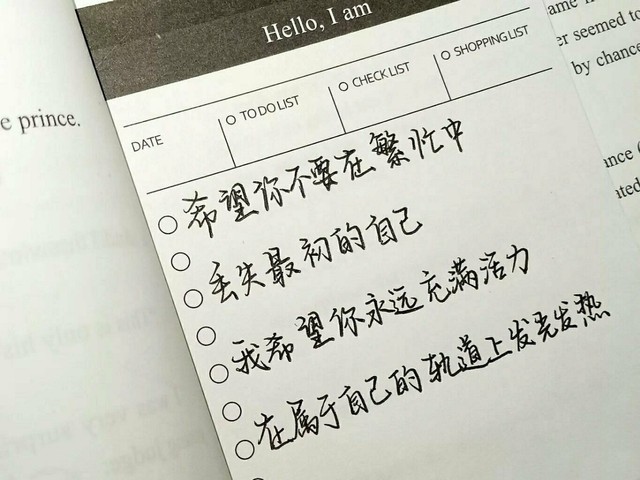 e prince.
Hello, I am
DATE
TO DO LIST
CHECK LIST
SHOPPING LIST
希望你不要在繁忙中
丢失最初的自己
我希望你永远充满活力
在属于自己的轨道上发光发热
ame
er seemed to
by chance
ance
ated